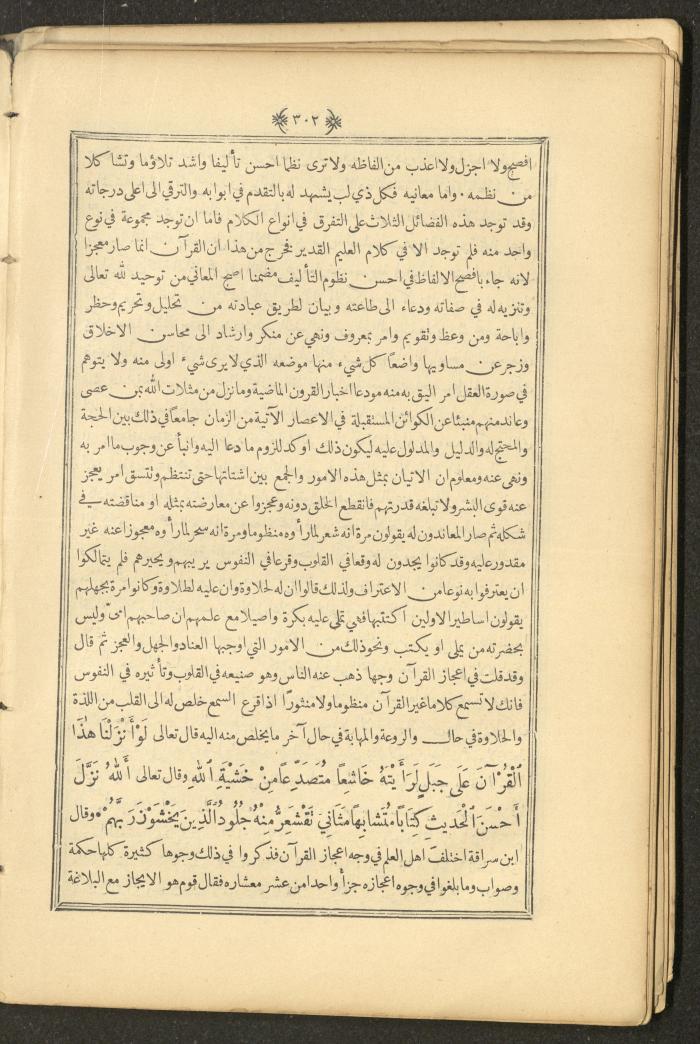 ﴿٣٠٢﴾
افصح ولا اجزل ولا اعذب من الفاظه ولا ترى نظما احسن تأليفا واشد تلاؤما وتشاكلا
من نظمه ٠ واما معانيه فكل ذي لب يشهد له بالتقدم في ابوابه والترقي الى اعلى درجاته
وقد توجد هذه الفضائل الثلاث على التفرق في انواع الكلام فاما ان توجد مجموعة في نوع
واحد منه فلم توجد الا في كلام العليم القدير فخرج من هذا ان القرآن انما صار معجزا
لانه جاء بافصح الالفاظ في احسن نظوم التأليف مضمنا اصح المعاني من توحيد لله تعالى
وتنزيه له في صفاته ودعاء الى طاعته وبيان لطريق عبادته من تحليل وتحريم وحظر
واباحة ومن وعظ وتقويم وامر بمعروف ونهي عن منكر وارشاد الى محاسن الاخلاق
وزجر عن مساويها واضعًا كل شيء منها موضعه الذي لا يرى شيء اولى منه ولا يتوهم
في صورة العقل امر اليق به منه مودعا اخبار القرون الماضية وما نزل من مثلات الله بمن عصى
وعاند منهم منبئا عن الكوائن المستقبلة في الاعصار الآتية من الزمان جامعًا في ذلك بين الحجة
والمحتج له والدليل والمدلول عليه ليكون ذلك اوكد للزوم ما دعا اليه وانبأ عن وجوب ما امر به
ونهى عنه ومعلوم ان الاتيان بمثل هذه الامور والجمع بين اشتاتها حتى تنتظم وتتسق امر يعجز
عنه قوى البشر ولا تبلغه قدرتهم فانقطع الخلق دونه وعجزوا عن معارضته بمثله او مناقضته في
شكله ثم صار المعاندون له يقولون مرة انه شعر لما رأوه منظوما ومرة انه سحر لما رأوه معجوزا عنه غير
مقدور عليه وقد كانوا يجدون له وقعا في القلوب وقرعا في النفوس يريبهم ويحيرهم فلم يتمالكوا
ان يعترفوا به نوعا من الاعتراف ولذلك قالوا ان له لحلاوة وان عليه لطلاوة وكانوا مرة بجهلهم
يقولون اساطير الاولين اكتتبها فهي تملى عليه بكرة واصيلا مع علمهم ان صاحبهم امىّ وليس
بحضرته من يملى او يكتب ونحو ذلك من الامور التي اوجبها العناد والجهل والعجز ثم قال
وقد قلت في اعجاز القرآن وجها ذهب عنه الناس وهو صنيعه في القلوب وتأثيره في النفوس
فانك لا تسمع كلاما غير القرآن منظوما ولا منثورًا اذا قرع السمع خلص له الى القلب من اللذة
والحلاوة في حال والروعة والمهابة في حال آخر ما يخلص منه اليه قال تعالى لَوْ أَنْزَلْنَا هٰذَا
ٱلْقُرْآنَ عَلَى جَبَلٍ لَرَأَيْتَهُ خَاشِعًا مُتَصَدِّعًا مِنْ خَشْيَةِ ٱللهِ وقال تعالى أَللهُ نَزَّلَ
أَحْسَنَ ٱلْحَدِيثِ كِتَابًا مُتَشَابِهًا مَثَانِيَ تَقْشَعِرُّ مِنْهُ جُلُودُ ٱلَّذِينَ يَخْشَوْنَ رَبَّهُمْ ٠ وقال
ابن سراقة اختلف اهل العلم في وجه اعجاز القرآن فذكروا في ذلك وجوها كثيرة كلها حكمة
وصواب وما بلغوا في وجوه اعجازه جزأ واحدا من عشر معشاره فقال قوم هو الايجاز مع البلاغة